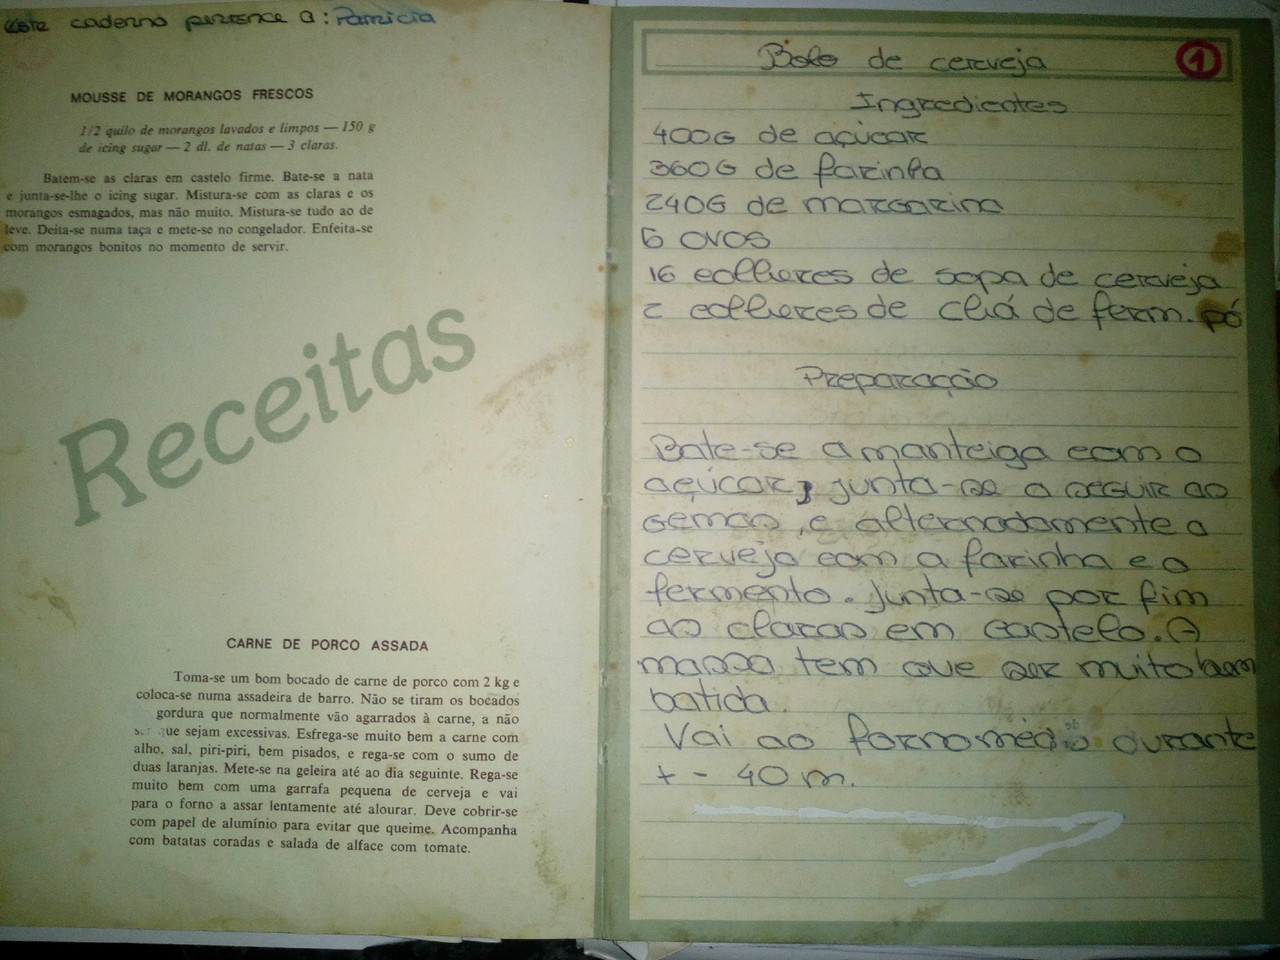 Este caderno pertence a: Patricia
MOUSSE DE MORANGOS FRESCOS
1/2 quilo de morangos lavados e limpos — 150 g
de icing sugar — 2 dl. de natas — 3 claras.
Batem-se as claras em castelo firme. Bate-se a nata
e junta-se-lhe o icing sugar. Mistura-se com as claras e os
morangos esmagados, mas não muito. Mistura-se tudo ao de
leve. Deita-se numa taça e mete-se no congelador. Enfeita-se
com morangos bonitos no momento de servir.
Receitas
CARNE DE PORCO ASSADA
Toma-se um bom bocado de carne de porco com 2 kg e
coloca-se numa assadeira de barro. Não se tiram os bocados
gordura que normalmente vão agarrados à carne, a não
ser que sejam excessivas. Esfrega-se muito bem a carne com
alho, sal, piri-piri, bem pisados, e rega-se com o sumo de
duas laranjas. Mete-se na geleira até ao dia seguinte. Rega-se
muito bem com uma garrafa pequena de cerveja e vai
para o forno a assar lentamente até alourar. Deve cobrir-se
com papel de alumínio para evitar que queime. Acompanha
com batatas coradas e salada de alface com tomate.
Bolo de cerveja 1
Ingredientes
400G de açúcar
360G de farinha
240G de margarina
6 ovos
16 colheres de sopa de cerveja
2 colheres de chá de ferm. pó
Preparação
Bate-se a manteiga com o
açúcar, junta-se a seguir as
gemas, e alternadamente a
cerveja com a farinha e o
fermento. Junta-se por fim
as claras em castelo. A
massa tem que ser muito bem
batida.
Vai ao forno médio durante
+ - 40 m.